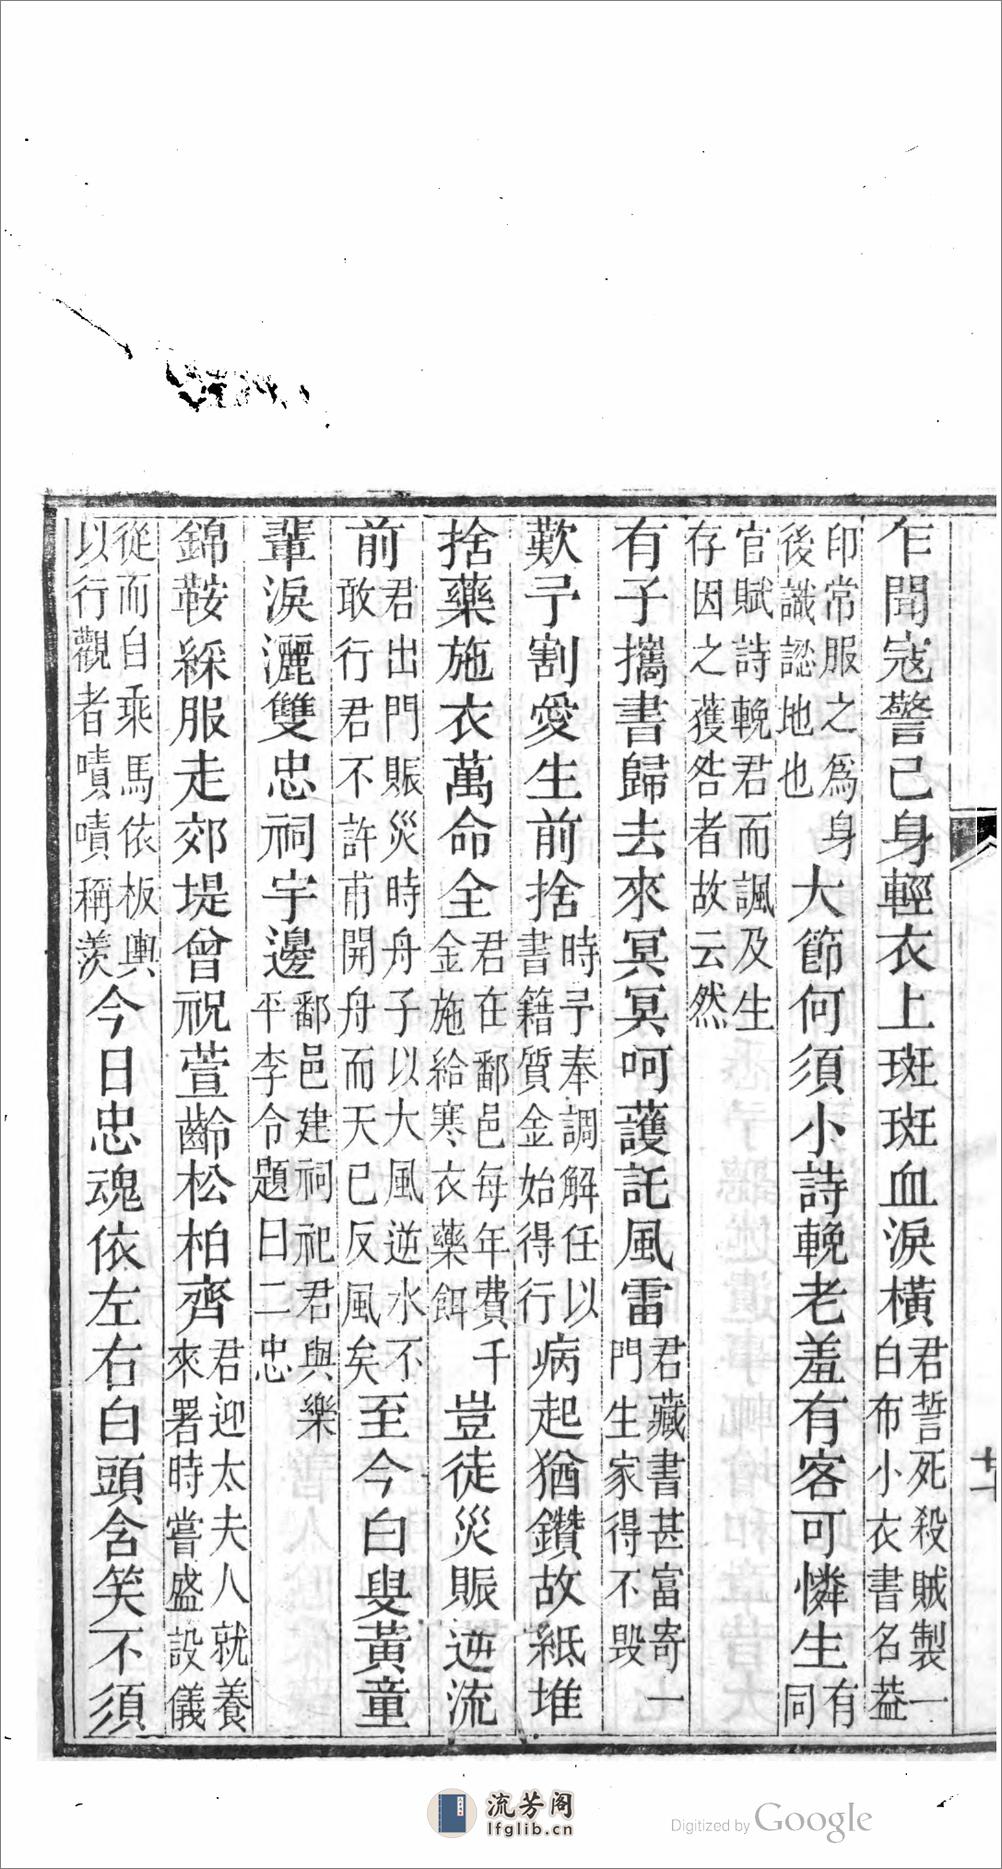 乍聞寇警己身輕衣上斑斑血淚橫君誓死殺賊製一白布小衣書名葢
印常服之為身後識認地也大節何須小詩輓老羞有客可憐生有同
官賦詩輓君而諷及生存因之獲咎者故云然
有子攜書歸去來冥冥呵護託風雷君藏書甚富寄一門生家得不毀
歎予割愛生前捨時予奉調解任以書籍質金始得行病起猶鑽故紙堆
捨藥施衣萬命全君在鄱邑每年費千金施給寒衣藥餌豈徒災賑逆流
前君出門賑災時舟子以大風逆水不敢行君不許甫開舟而天已反風矣至今白叟黃童
輩淚灑雙忠祠宇邊鄱邑建祠祀君與樂平李令題曰二忠
錦鞍綵服走郊堤曾祝萱齡松柏齊君迎太夫人就養來署時嘗盛設儀
從而自乘馬依板輿以行觀者嘖嘖稱羨今日忠魂依左右白頭含笑不須
廿一
流芳阁
lfglib.cn
Digitized by Google